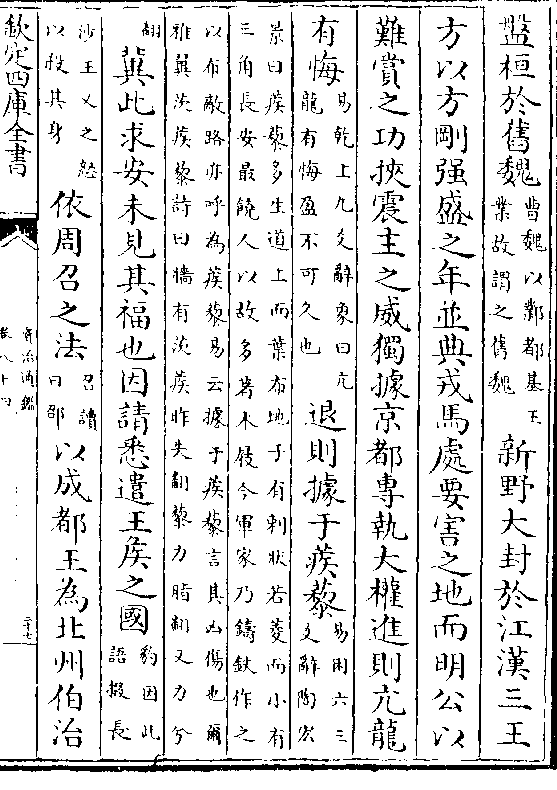 盤桓於舊魏曹魏以鄴都基王
業故謂之舊魏新野大封於江漢三王
方以方剛强盛之年並典戎馬處要害之地而明公以
難賞之功挾震主之威獨據京都專執大權進則亢龍
有悔易乾上九爻辭象曰亢
龍有悔盈不可久也退則據于蒺藜易困六三
爻辭陶宏
景曰蒺藜多生道上而葉布地子有刺狀若菱而小有
三角長安最饒人以故多著木屐今軍家乃鑄鉄作之
以布敵路亦呼為蒺藜易云據于蒺藜言其凶傷也爾
雅茨蒺藜詩曰牆有茨蒺昨失翻藜力脂翻又力兮
翻冀此求安未見其福也因請悉遣王侯之國豹因此
語掇長
沙王乂之怒
以殺其身依周召之法召讀
曰邵以成都王為北州伯治
欽定四庫全書
資治通鑑
卷八十四
二十七